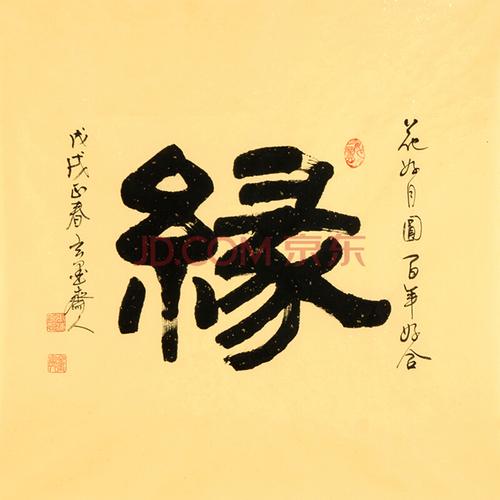 花好月圓百年好合
緣
戊戌正春玄墨齋人
JD.COM 京东